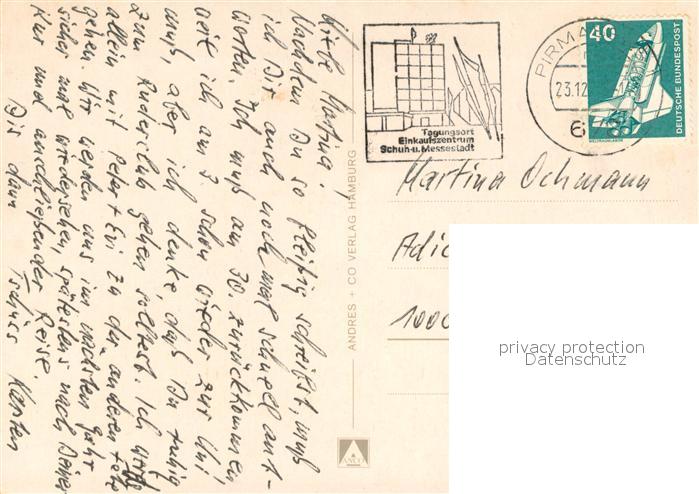 Liebe Martina!
Nachdem Du so fleißig schreibst, muß
ich Dir auch noch mal schnell ant-
worten. Ich muß am 30. zurückkommen
weil ich am 3. schon wieder zur Uni
muß, aber ich denke, daß Du ruhig
zum Ruderclub gehen solltest. Ich werde
allein mit Peter + Evi zu der anderen Fete
gehen. Wir werden uns im nächsten Jahr
sicher mal wiedersehen, spätestens nach Deiner
Kur und anschließender Reise.
Bis dann Tschüss Karsten
ANDRES + CO VERLAG HAMBURG
ANCO
Tagungsort
Einkaufszentrum
Schuh-u. Messestadt
PIRMA
23.12
6
40
DEUTSCHE BUNDESPOST
Martina Ochmann
1000
privacy protection
Datenschutz